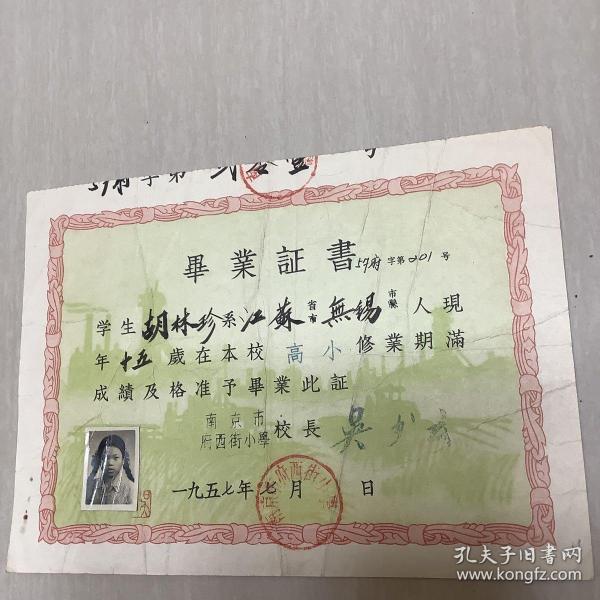 57府字第 弍零壹 号
畢業証書 57府 字第201号
学生胡林珍系江蘇省市無锡市縣人現
年十五歲在本校高小修業期滿
成績及格准予畢業此証
南京市
府西街小學 校長 吳
一九五七年七月 日
孔夫子旧書网
www.kongfz.com